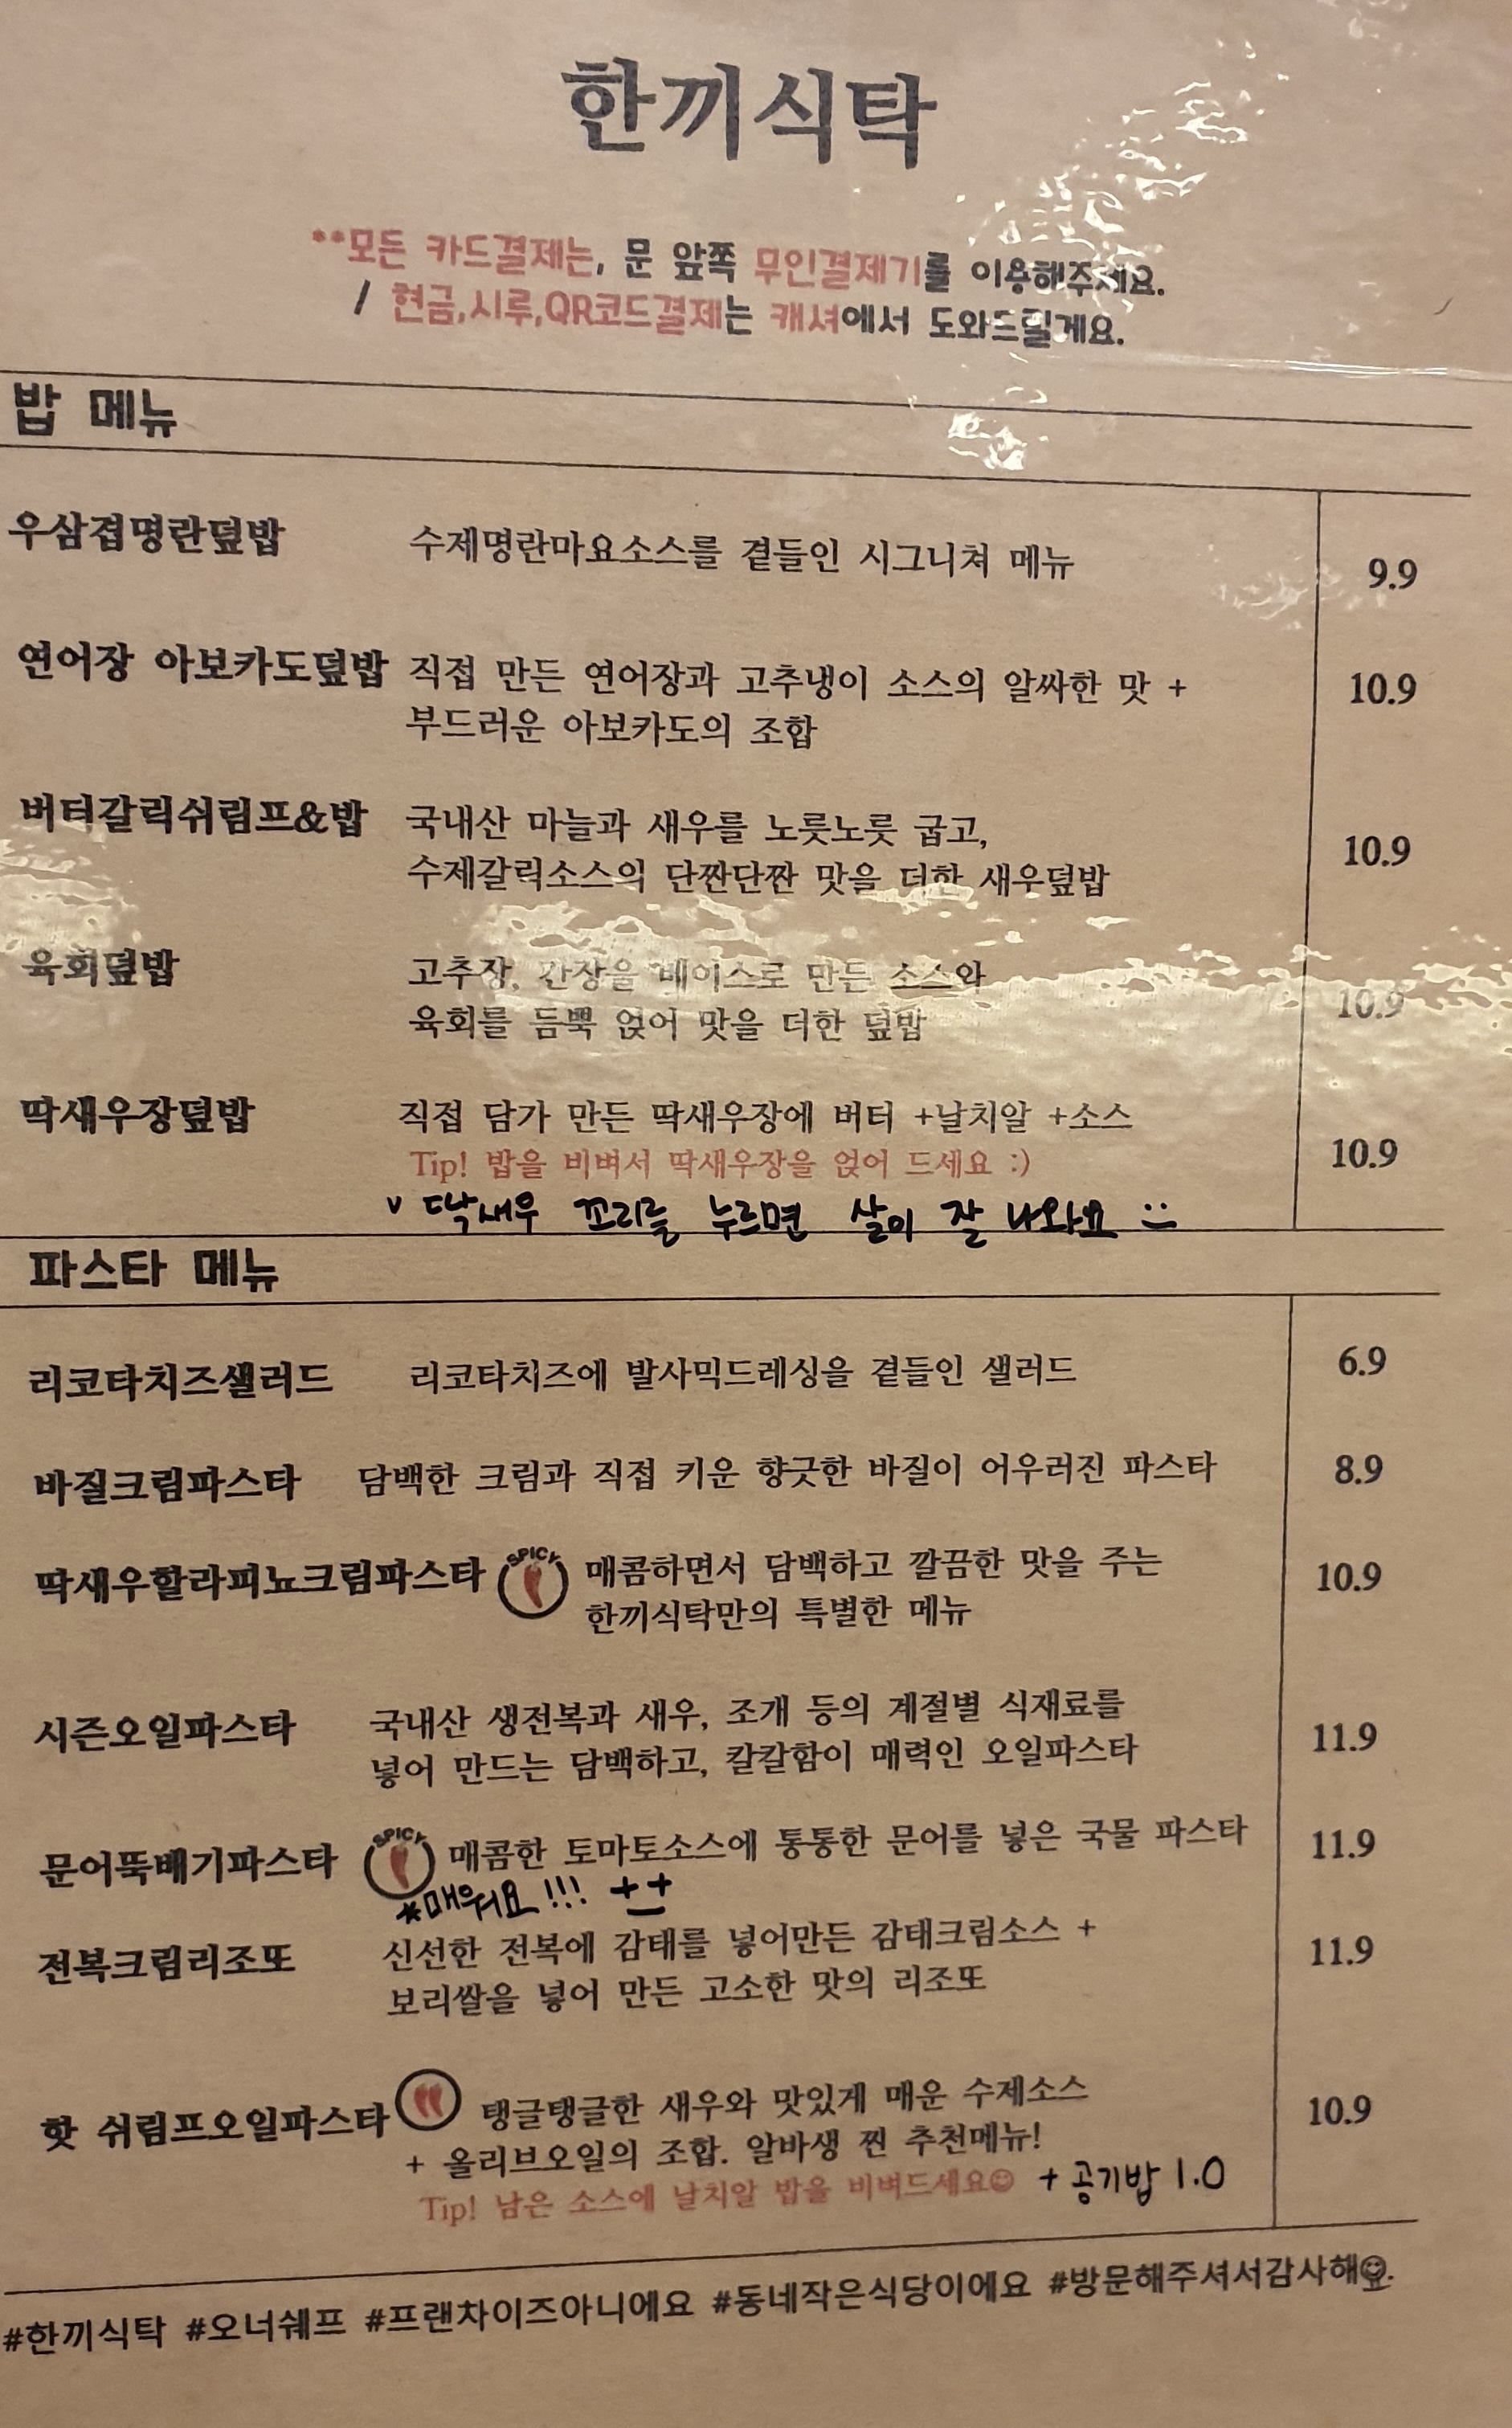 한끼식탁
**모든 카드결제는, 문 앞쪽 무인결제기를 이용해주세요.
/ 현금,시루,QR코드결제는 캐셔에서 도와드릴게요.
밥 메뉴
우삼겹명란덮밥 수제명란마요소스를 곁들인 시그니쳐 메뉴 9.9
연어장 아보카도덮밥 직접 만든 연어장과 고추냉이 소스의 알싸한 맛 + 10.9
부드러운 아보카도의 조합
버터갈릭쉬림프&밥 국내산 마늘과 새우를 노릇노릇 굽고, 10.9
수제갈릭소스의 단짠단짠 맛을 더한 새우덮밥
육회덮밥 고추장, 간장을 베이스로 만든 소스와 10.9
육회를 듬뿍 얹어 맛을 더한 덮밥
딱새우장덮밥 직접 담가 만든 딱새우장에 버터 +날치알 +소스 10.9
Tip! 밥을 비벼서 딱새우장을 얹어 드세요 :)
v 닥새우 꼬리를 누르면 살이 잘 나와요 :)
파스타 메뉴
리코타치즈샐러드 리코타치즈에 발사믹드레싱을 곁들인 샐러드 6.9
바질크림파스타 담백한 크림과 직접 키운 향긋한 바질이 어우러진 파스타 8.9
딱새우할라피뇨크림파스타 SPICY 매콤하면서 담백하고 깔끔한 맛을 주는 10.9
한끼식탁만의 특별한 메뉴
시즌오일파스타 국내산 생전복과 새우, 조개 등의 계절별 식재료를 11.9
넣어 만드는 담백하고, 칼칼함이 매력인 오일파스타
문어뚝배기파스타 SPICY 매콤한 토마토소스에 통통한 문어를 넣은 국물 파스타 11.9
*매워요!!! ++
전복크림리조또 신선한 전복에 감태를 넣어만든 감태크림소스 + 11.9
보리쌀을 넣어 만든 고소한 맛의 리조또
핫 쉬림프오일파스타 탱글탱글한 새우와 맛있게 매운 수제소스 10.9
+ 올리브오일의 조합. 알바생 찐 추천메뉴!
Tip! 남은 소스에 날치알 밥을 비벼드세요☺ + 공기밥 1.0
#한끼식탁 #오너쉐프 #프랜차이즈아니에요 #동네작은식당이에요 #방문해주셔서감사해요.